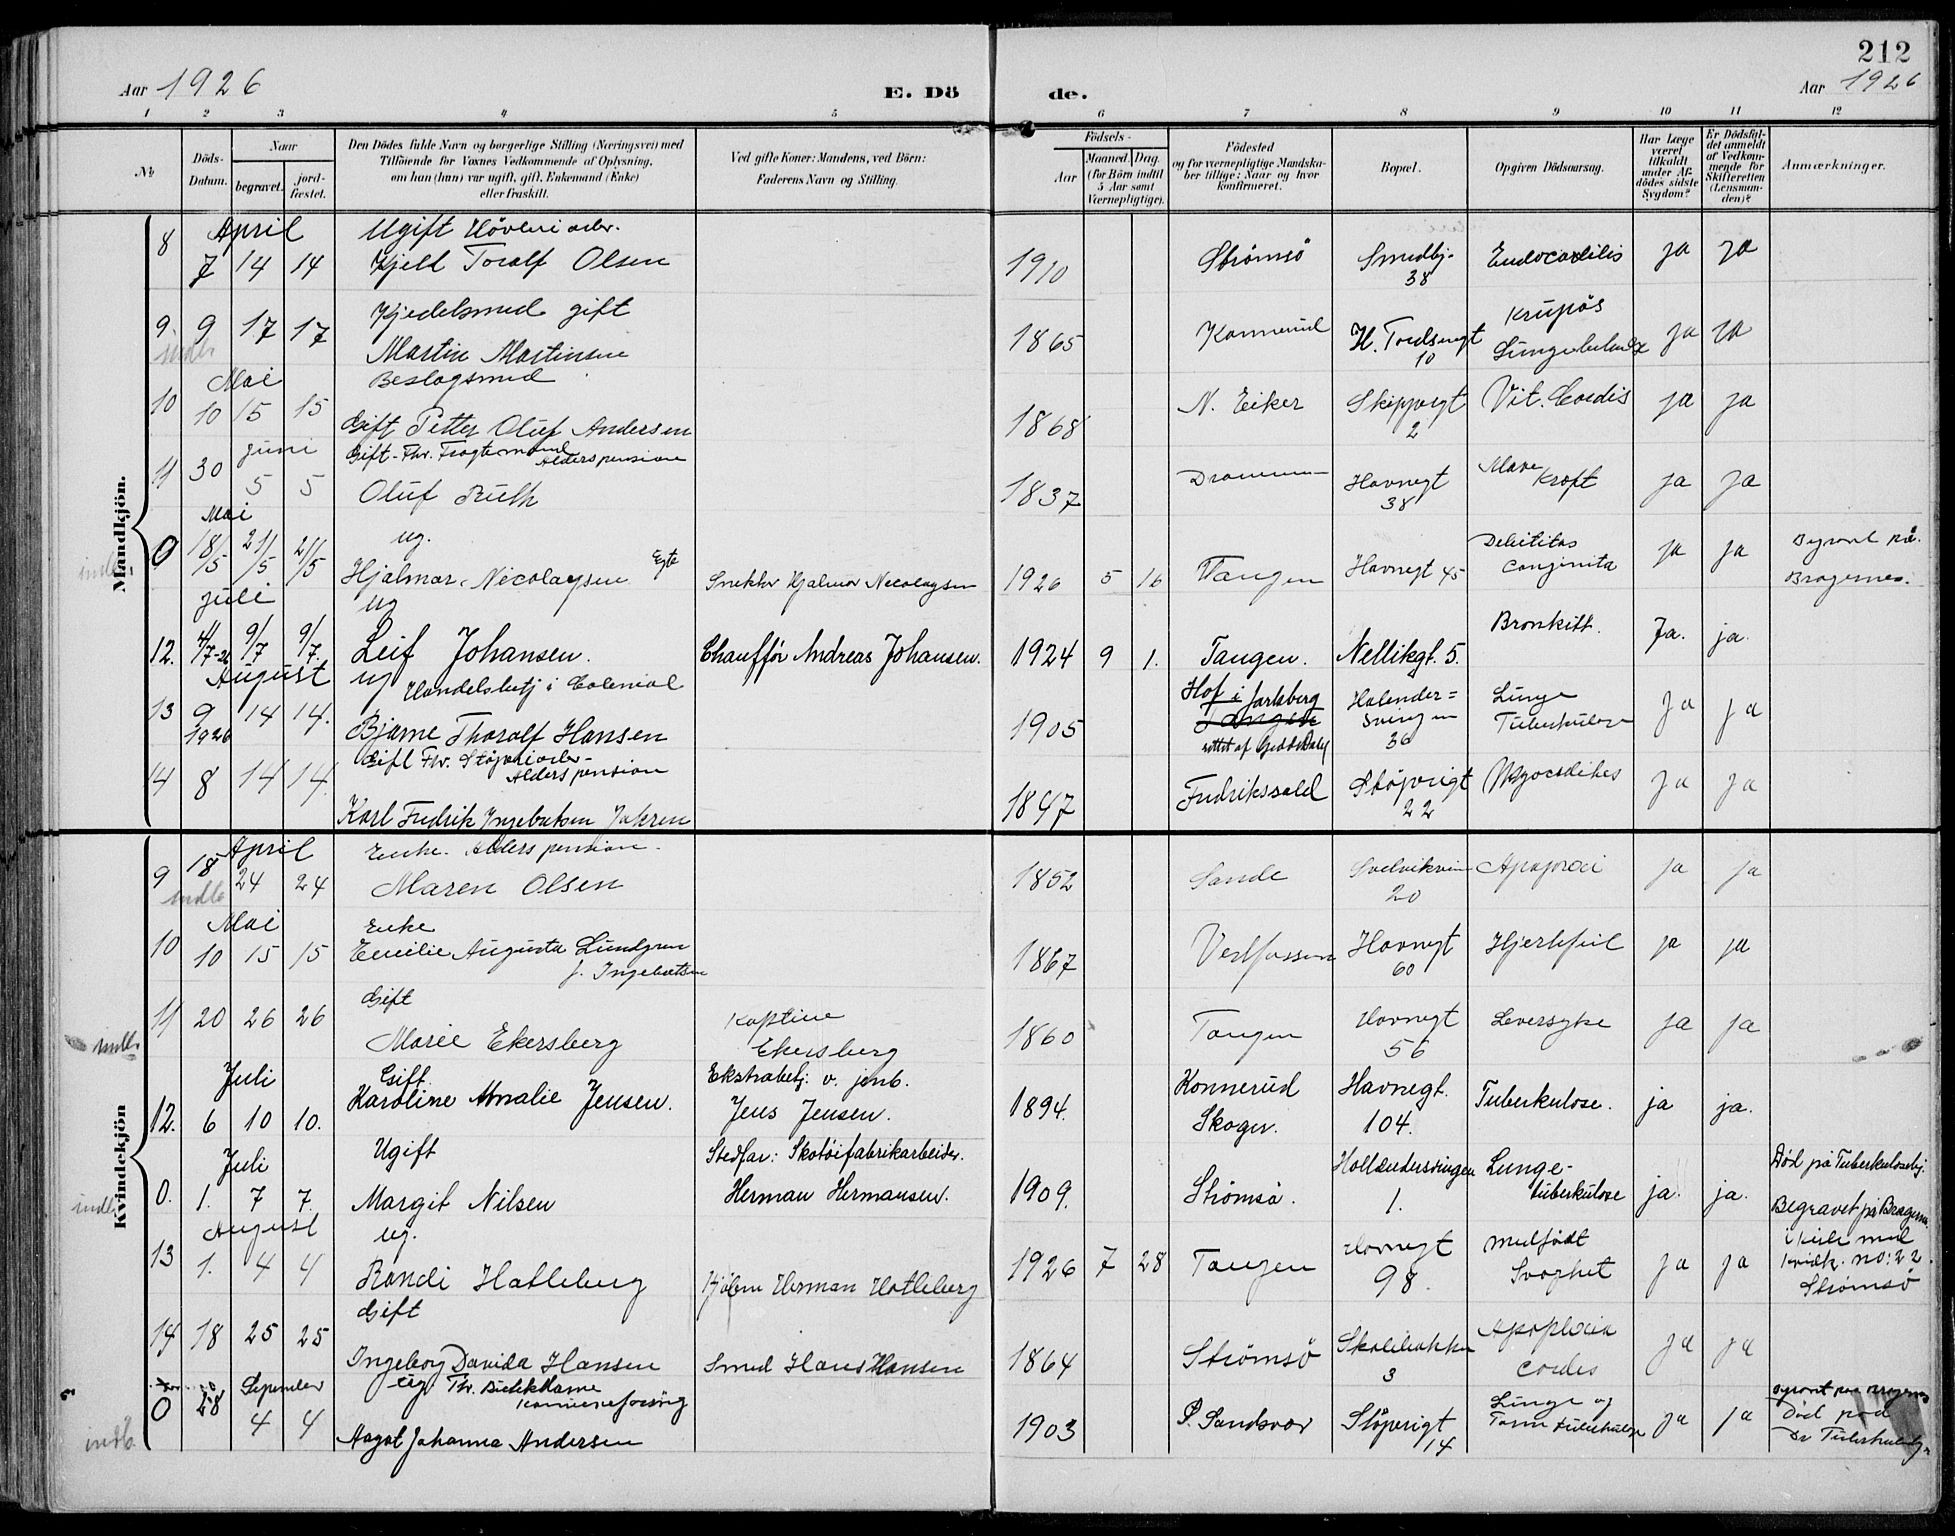 212
Aar 1926
E. Dö
de.
Aar 1926
1 2 3 4 5 6 7 8 9 10 11 12
No
Döds-
Datum.
Naar
begravet.
jord-
fæstet.
Den Dödes fulde Navn og borgerlige Stilling (Næringsvei) med
Tilföiende for Voxnes Vedkommende af Oplysning,
om han (hun) var ugift, gift, Enkemand (Enke)
eller fraskilt.
Ved gifte Koner: Mandens, ved Börn:
Faderens Navn og Stilling.
Födsels-
Aar
Maaned. Dag.
(for Börn indtil
5 Aar samt
Værnepligtige).
Födested
og for værnepligtige Mandska-
ber tillige: Naar og hvor
konfirmeret.
Bopæl.
Opgiven Dödsaarsag.
Har Læge
været
tilkaldt
under Af-
dödes sidste
Sygdom?
Er Dödsfal-
det anmeldt
af Vedkom-
mende for
Skifteretten
(Lensman-
den)?
Anmærkninger.
Mandkjön.
April Ugift Höveriarb.
8 7 14 14 Kjell Toralf Olsen 1910 Strømsø Smedbj. 38 Endocarditis ja ja
Kjedelsmed gift
9 9 17 17 Martin Martinsen 1865 Konnerud H. Tordsengt 10 Krupøs ja ja
Mai Beslagsmed
10 10 15 15 Gift Petter Oluf Andersen 1868 N. Eiker Skippergt 2 Vit. Cordis ja ja
Juni Gift - Fhv. Fragtemand Alderspension
11 30 5 5 Oluf Ruth 1837 Drammen Havnegt 38 Mave Kræft ja ja
Mai ug.
0 18/5 21/5 21/5 Hjalmar Nicolaysen Egte Snekker Hjalmar Nicolaysen 1926 5 16 Tangen Havnegt 45 Debilitas Congenita ja ja Bragernes.
indb.
Juli ug
12. 4/7-26 9/7 9/7. Leif Johansen. Chauffør Andreas Johansen. 1924 9 1. Tangen. Nellikgt. 5. Bronkitt. Ja. ja.
August ug Handelsbetj i Colonial
13 9 1926 14 14. Bjarne Thoralf Hansen 1905 Hof i Jarlsberg Tangen Holender= svingen 36 Lunge Tuberkulose ja ja
Gift Fhv. Støperiarb- Alderspension
14 8 14 14 Karl Fredrik Ingebretsen Jahren 1847 Fredrikshald Støperigt 22 ja ja
Kvindekjön
April Enke. Alderspension.
9 18 24 24 Maren Olsen 1852 Sande Svelvikvn 20 ja ja
indb
Mai Enke
10 10 15 15 Emilie Augusta Lundgren f. Ingebretsen 1867 Vestfossen Havnegt 60 Hjertefeil ja ja
Gift
11 20 26 26 Marie Ekersberg Kaptein Ekersberg 1860 Tangen Havnegt 56 Leversyke ja ja
indb.
Juli Gift. Ekstrabetj. v. jernb.
12. 6 10 10. Karoline Amalie Jensen. Jens Jensen. 1894. Konnerud Skoger. Havnegt. 104. Tuberkulose. ja ja.
Juli Ugift Stedfar: Skotøifabrikarbeider.
0. 1. 7 7. Margit Nilsen Herman Hermansen. 1909. Strømsø. Hollendersvingen 1. Lunge- tuberkulose ja. ja. Død på Tuberkulosehj. Begravet på Bragernes.
indb.
August ug.
13 1. 4 4 Randi Hatleberg Herman Hatleberg 1926 7 28 Tangen Havnegt 98. Medfødt Svaghet ja ja i kiste med kvindk. no: 22 Strømsø
Gift
14 18 25 25 Ingeborg Davida Hansen Smed Hans Hansen 1864 Strømsø Skolebakken 3 Apoplexia cordis ja ja
September ug Fhv.
0 28 4 4 Aagot Johanna Andersen 1903 S. Sandsvær Støperigt 14 Lunge og Tarm tuberkulose ja ja Død paa Dr Tuberkulosehj.
indb.